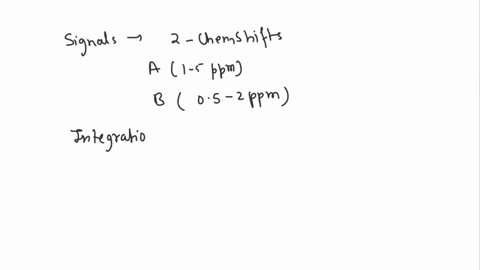 Signals → 2-Chemshifts
A (1-5 ppm)
B ( 0.5-2 ppm)
Integratio